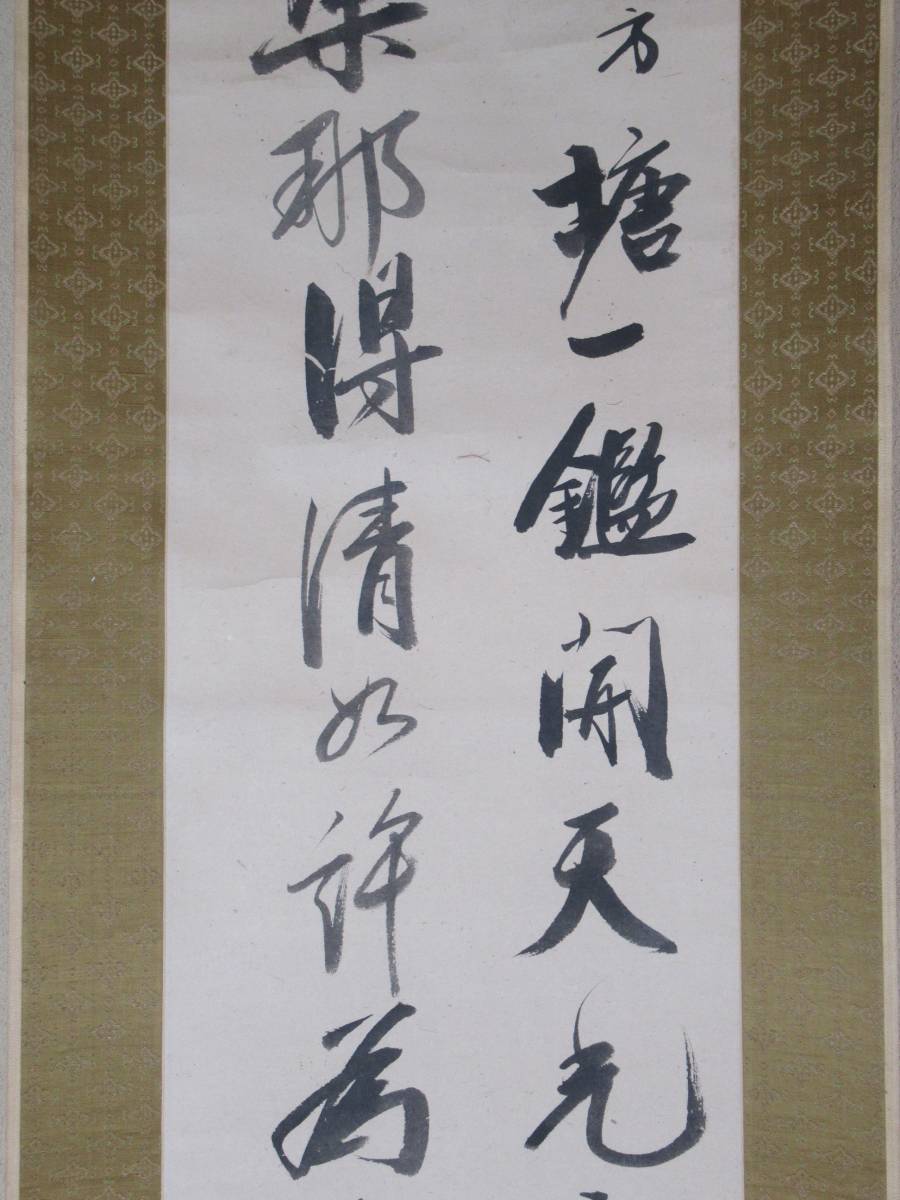 方塘一鑑開天光
渠那得清如許為